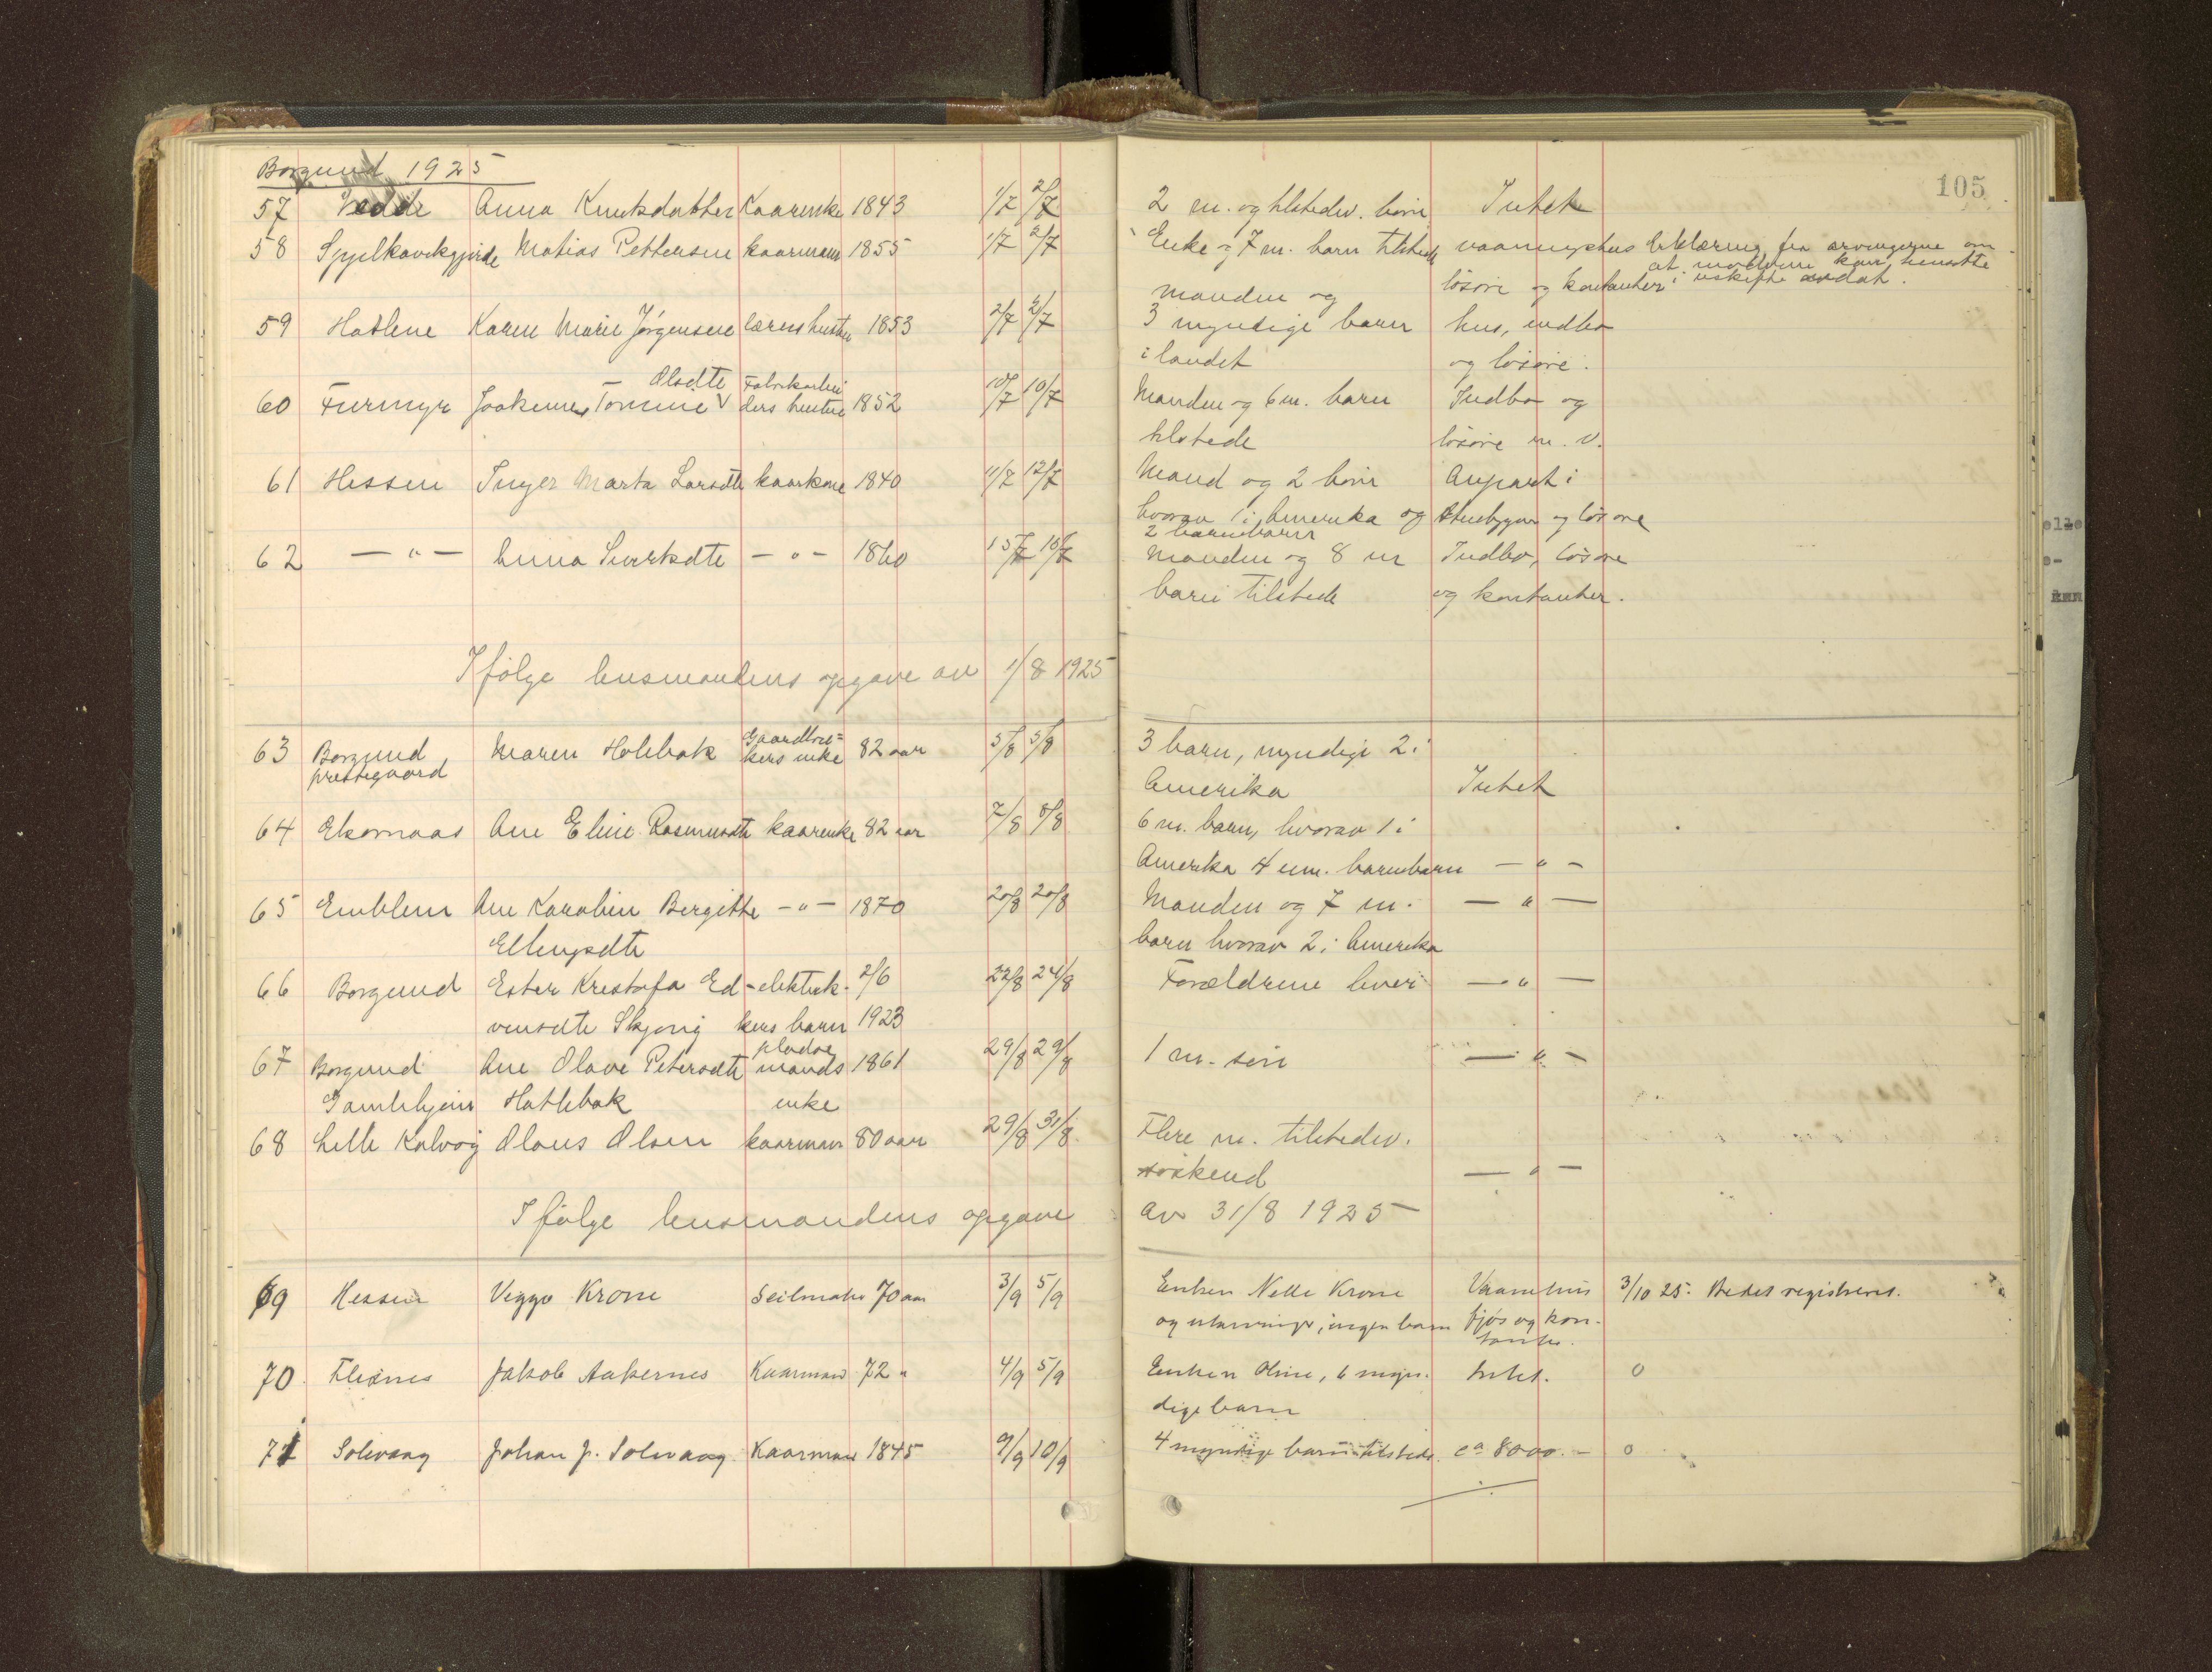 Borgund 1925
105
57 Vedde Anna Knutsdatter Kaarenke 1843 1/7 2/7 2 m. og tilstedev. barn Intet
58 Spjelkavikgjerde Matias Pettersen kaarmann 1855 1/7 2/7 Enke og 7 m. barn tilstede vaaningshus Erklæring fra arvingerne om
at moderen kan hensitte
løsøre og kontanter i uskifte avdat.
59 Hatlene Karen Marie Jørgensen lærers hustru 1853 2/7 6/7 manden og
3 myndige barn hus, indbo
i landet og løsøre.
60 Furmyr Jaakimes Tomine Olsdte Fabrikarbei
ders hustru 1852 10/7 10/7 Manden og 6 m. barn Indbo og
tilstede løsøre m. v.
61 Hessen Inger Marta Larsdte kaarkone 1840 11/7 12/7 Mand og 2 barn Anpart i
hvorav 1 i Amerika og løsøre
2 barnebarn
62 — " — Anna Sivertsdte — " — 1860 15/7 18/7 Manden og 8 m Indbo, løsøre
barn tilstede og kontanter.
Ifølge lensmandens opgave av 1/8 1925
63 Borgund
prestegaard Maren Holebak Gaardbru=
kers enke 82 aar 5/8 5/8 3 barn, myndige 2 i
Amerika Intet
64 Ekornaas Ane Eline Rasmusdte kaarenke 82 aar 7/8 8/8 6 m. barn, hvorav 1 i
Amerika 4 um. barnebarn — " —
65 Emblem Ane Karolin Bergitte — " — 1870 20/8 20/8 Manden og 7 m. — " —
Ellingsdte barn hvorav 2 i Amerika
66 Borgund Ester Kristofa Ed- elektrik- 2/6 22/8 24/8 Forældrene lever — " —
vinsdte Skjong kers barn 1923
67 Borgund Ane Olave Petersdte mands 1861 29/8 29/8 1 m. søn — " —
Gamlehjem Hatlebak enke
68 Lille Kalvøy Olaus Olsen kaarmann 80 aar 29/8 31/8 Flere m. tilstedev.
søskend — " —
Ifølge lensmandens opgave av 31/8 1925
69 Hessen Viggo Krone Seilmaker 70 aar 3/9 5/9 Enken Nelle Krone Vaanehus 3/10 25. Bedes registreret.
og utarvinger, ingen barn fjøs og kon-
tanter.
70 Flisnes Jakob Aakernes Kaarmand 72 " 4/9 5/9 Enken Oline, 6 myn- Intet. 0
dige barn
71 Solevaag Johan J. Solevaag Kaarmand 1845 9/9 10/9 4 myndige barn tilstede. ca 8000.- 0